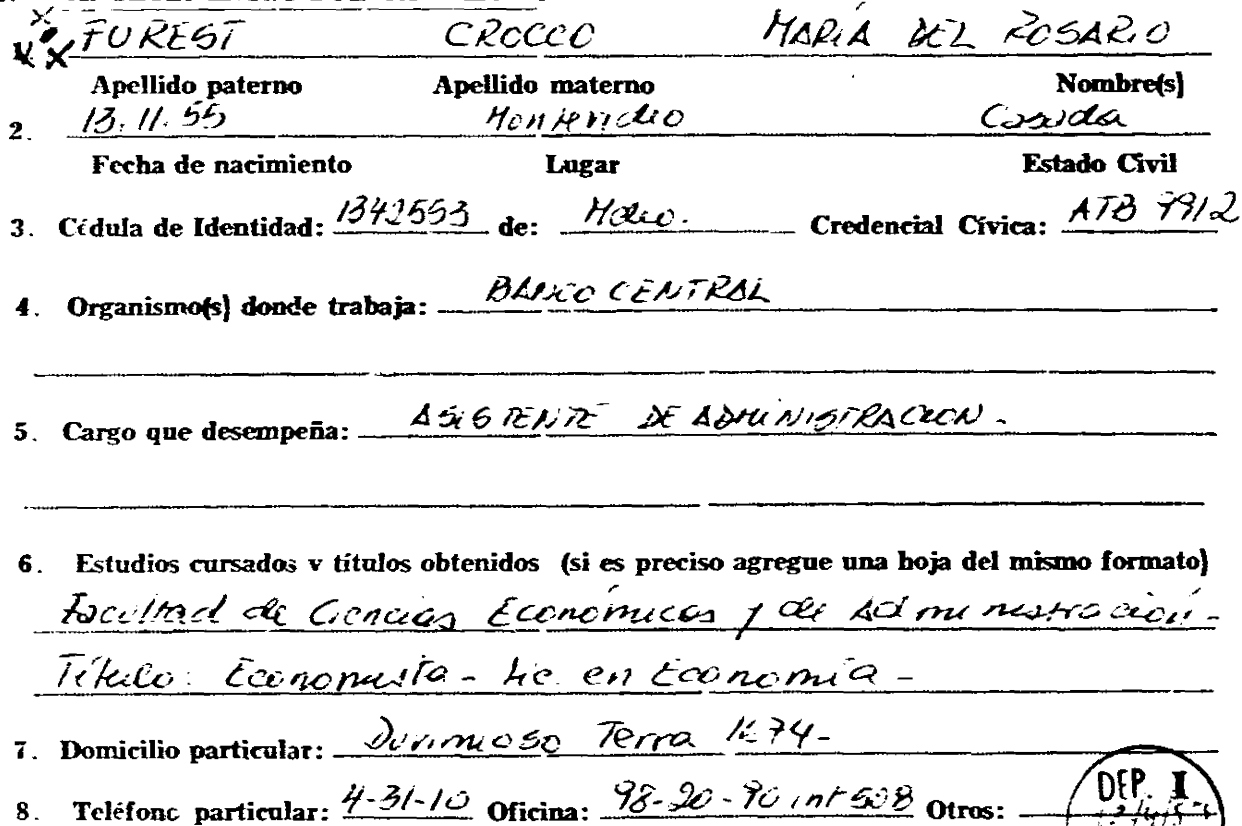 FUREST CROCCO MARÍA DEL ROSARIO
Apellido paterno Apellido materno Nombre(s)
2. 13.11.55 Montevideo Casada
Fecha de nacimiento Lugar Estado Civil
3. Cédula de Identidad: 1342553 de: Mdeo. Credencial Cívica: ATB
4. Organismo(s) donde trabaja: BANCO CENTRAL
5. Cargo que desempeña: ASISTENTE DE ADMINISTRACION -
6. Estudios cursados y títulos obtenidos (si es preciso agregue una hoja del mismo formato)
Facultad de Ciencias Económicas y de Administración -
Título: Economista - Lic. en Economía -
7. Domicilio particular: Terra
8. Teléfono particular: 4-31-10 Oficina: 98-20-90 int 508 Otros:
DEP. I